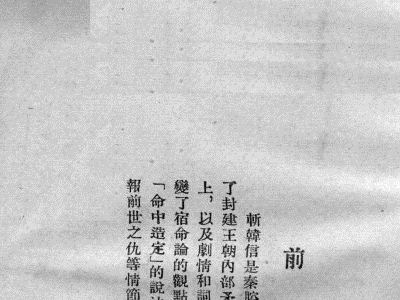 前
斬韓信是秦腔
了封建王朝內部矛
上，以及劇情和詞
變了宿命論的觀點
「命中造定」的說法
報前世之仇等情節